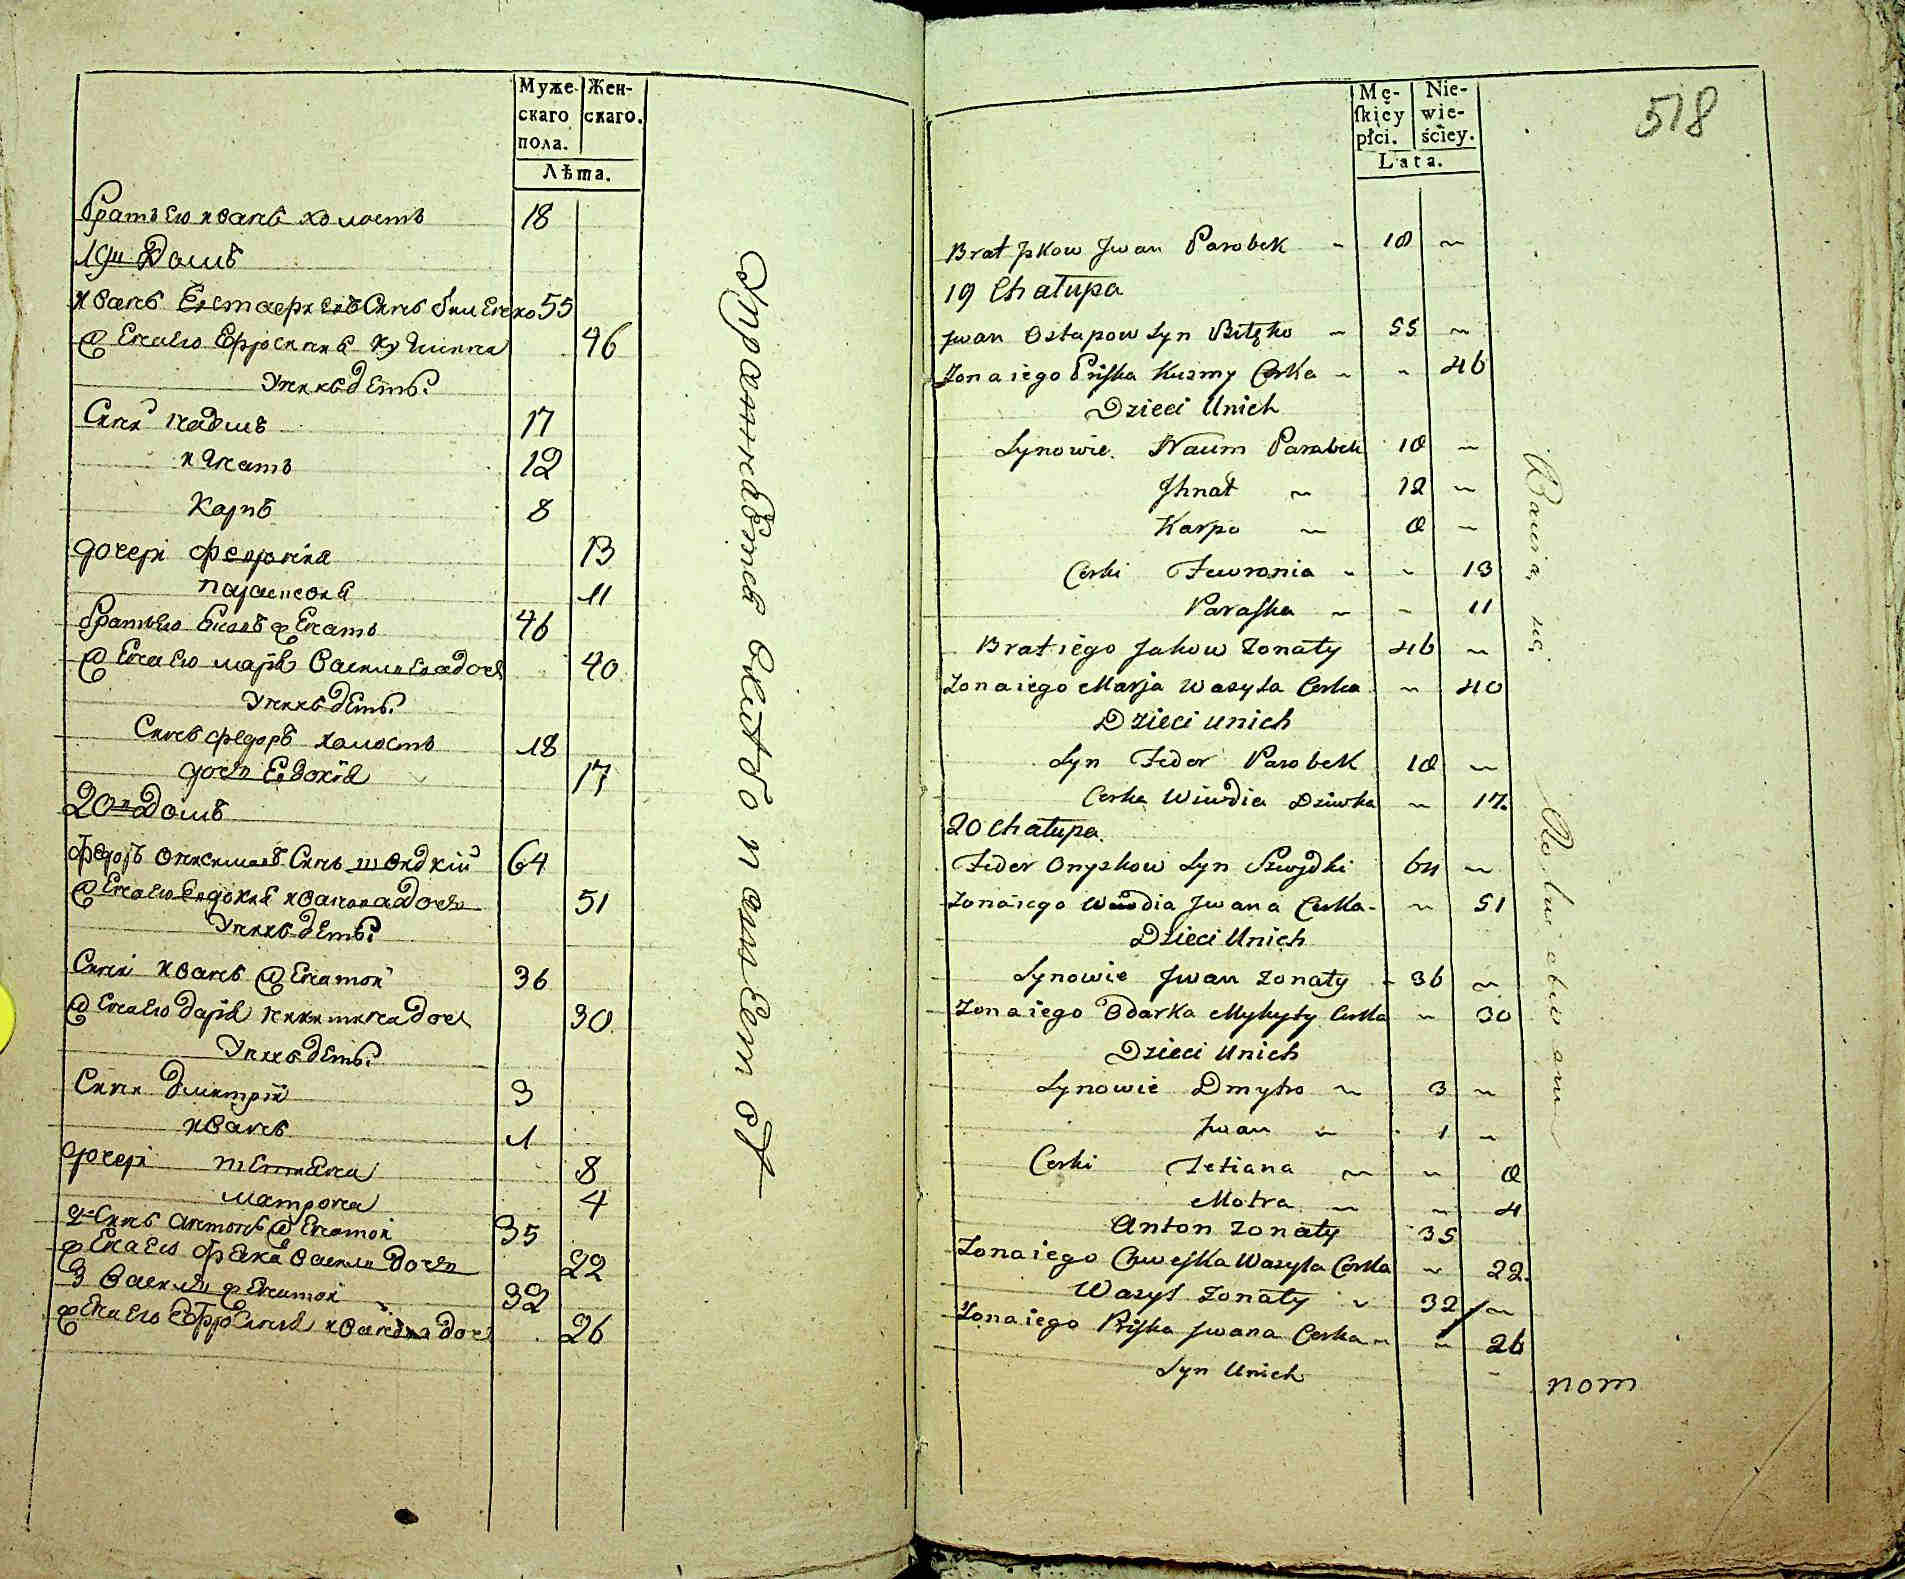 Муже- Жен-
скаго скаго.
пола.
Лѣта.
братъ ево иванъ холостъ 18
19й Домъ
иванъ Евстафиевъ Синъ 55
Жена ево Ефросиния Кузмина 46
У нихъ дети:
Сини наумъ 17
игнатъ 12
Карпъ 8
дочери феврония 13
параскевия 11
братъ ево Яковъ женатъ 46
Жена ево мария Василева дочь 40
У нихъ дети:
Синъ федоръ холостъ 18
дочь Евдокия 17
20й Домъ
федоръ онисимовъ Синъ швидкий 64
Жена ево Евдокия иванова дочь 51
У нихъ дети:
Сини иванъ Женатой 36
Жена ево дария никитина дочь 30
У нихъ дети:
Сини дмитрий 3
иванъ 1
дочери татиана 8
матрона 4
2й Синъ антонъ Женатой 35
жена ево Василия дочь 22
3 Василь женатой 32
жена ево Ефросиния иванова дочь 26
518
Mę- Nie-
skiey wie-
płci. ściey.
Lata.
Brat Jwan Parobek ~ 18 ~
19 Chałupa
Jwan Ostapow Syn ~ 55 ~
Zona iego Priska Kuzmy Corka ~ ~ 46
Dzieci Unich
Synowie Naum Parobek 18 ~
Jhnat ~ 12 ~
Karpo ~ 8 ~
Corki Fewronia ~ ~ 13
Paraska ~ ~ 11
Brat iego Jakow Zonaty 46 ~
Zona iego Marja Wasyla Corka ~ 40
Dzieci unich
Syn Fedor Parobek 18 ~
Corka Wiwdia Dziwka ~ 17
20 Chałupa
Fedor Onyskow Syn Szwydki 64 ~
Zona iego Wiwdia Jwana Corka ~ 51
Dzieci Unich
Synowie Jwan Zonaty ~ 36 ~
Zona iego Odarka Mykyty Corka ~ 30
Dzieci Unich
Synowie Dmytro ~ 3 ~
Jwan ~ 1 ~
Corki Tetiana ~ ~ 8
Motra ~ ~ 4
Anton Zonaty 35
Zona iego Chweska Wasyla Corka ~ 22
Wasyl Zonaty ~ 32 ~
Zona iego Priska Jwana Corka ~ ~ 26
Syn Unich
пот